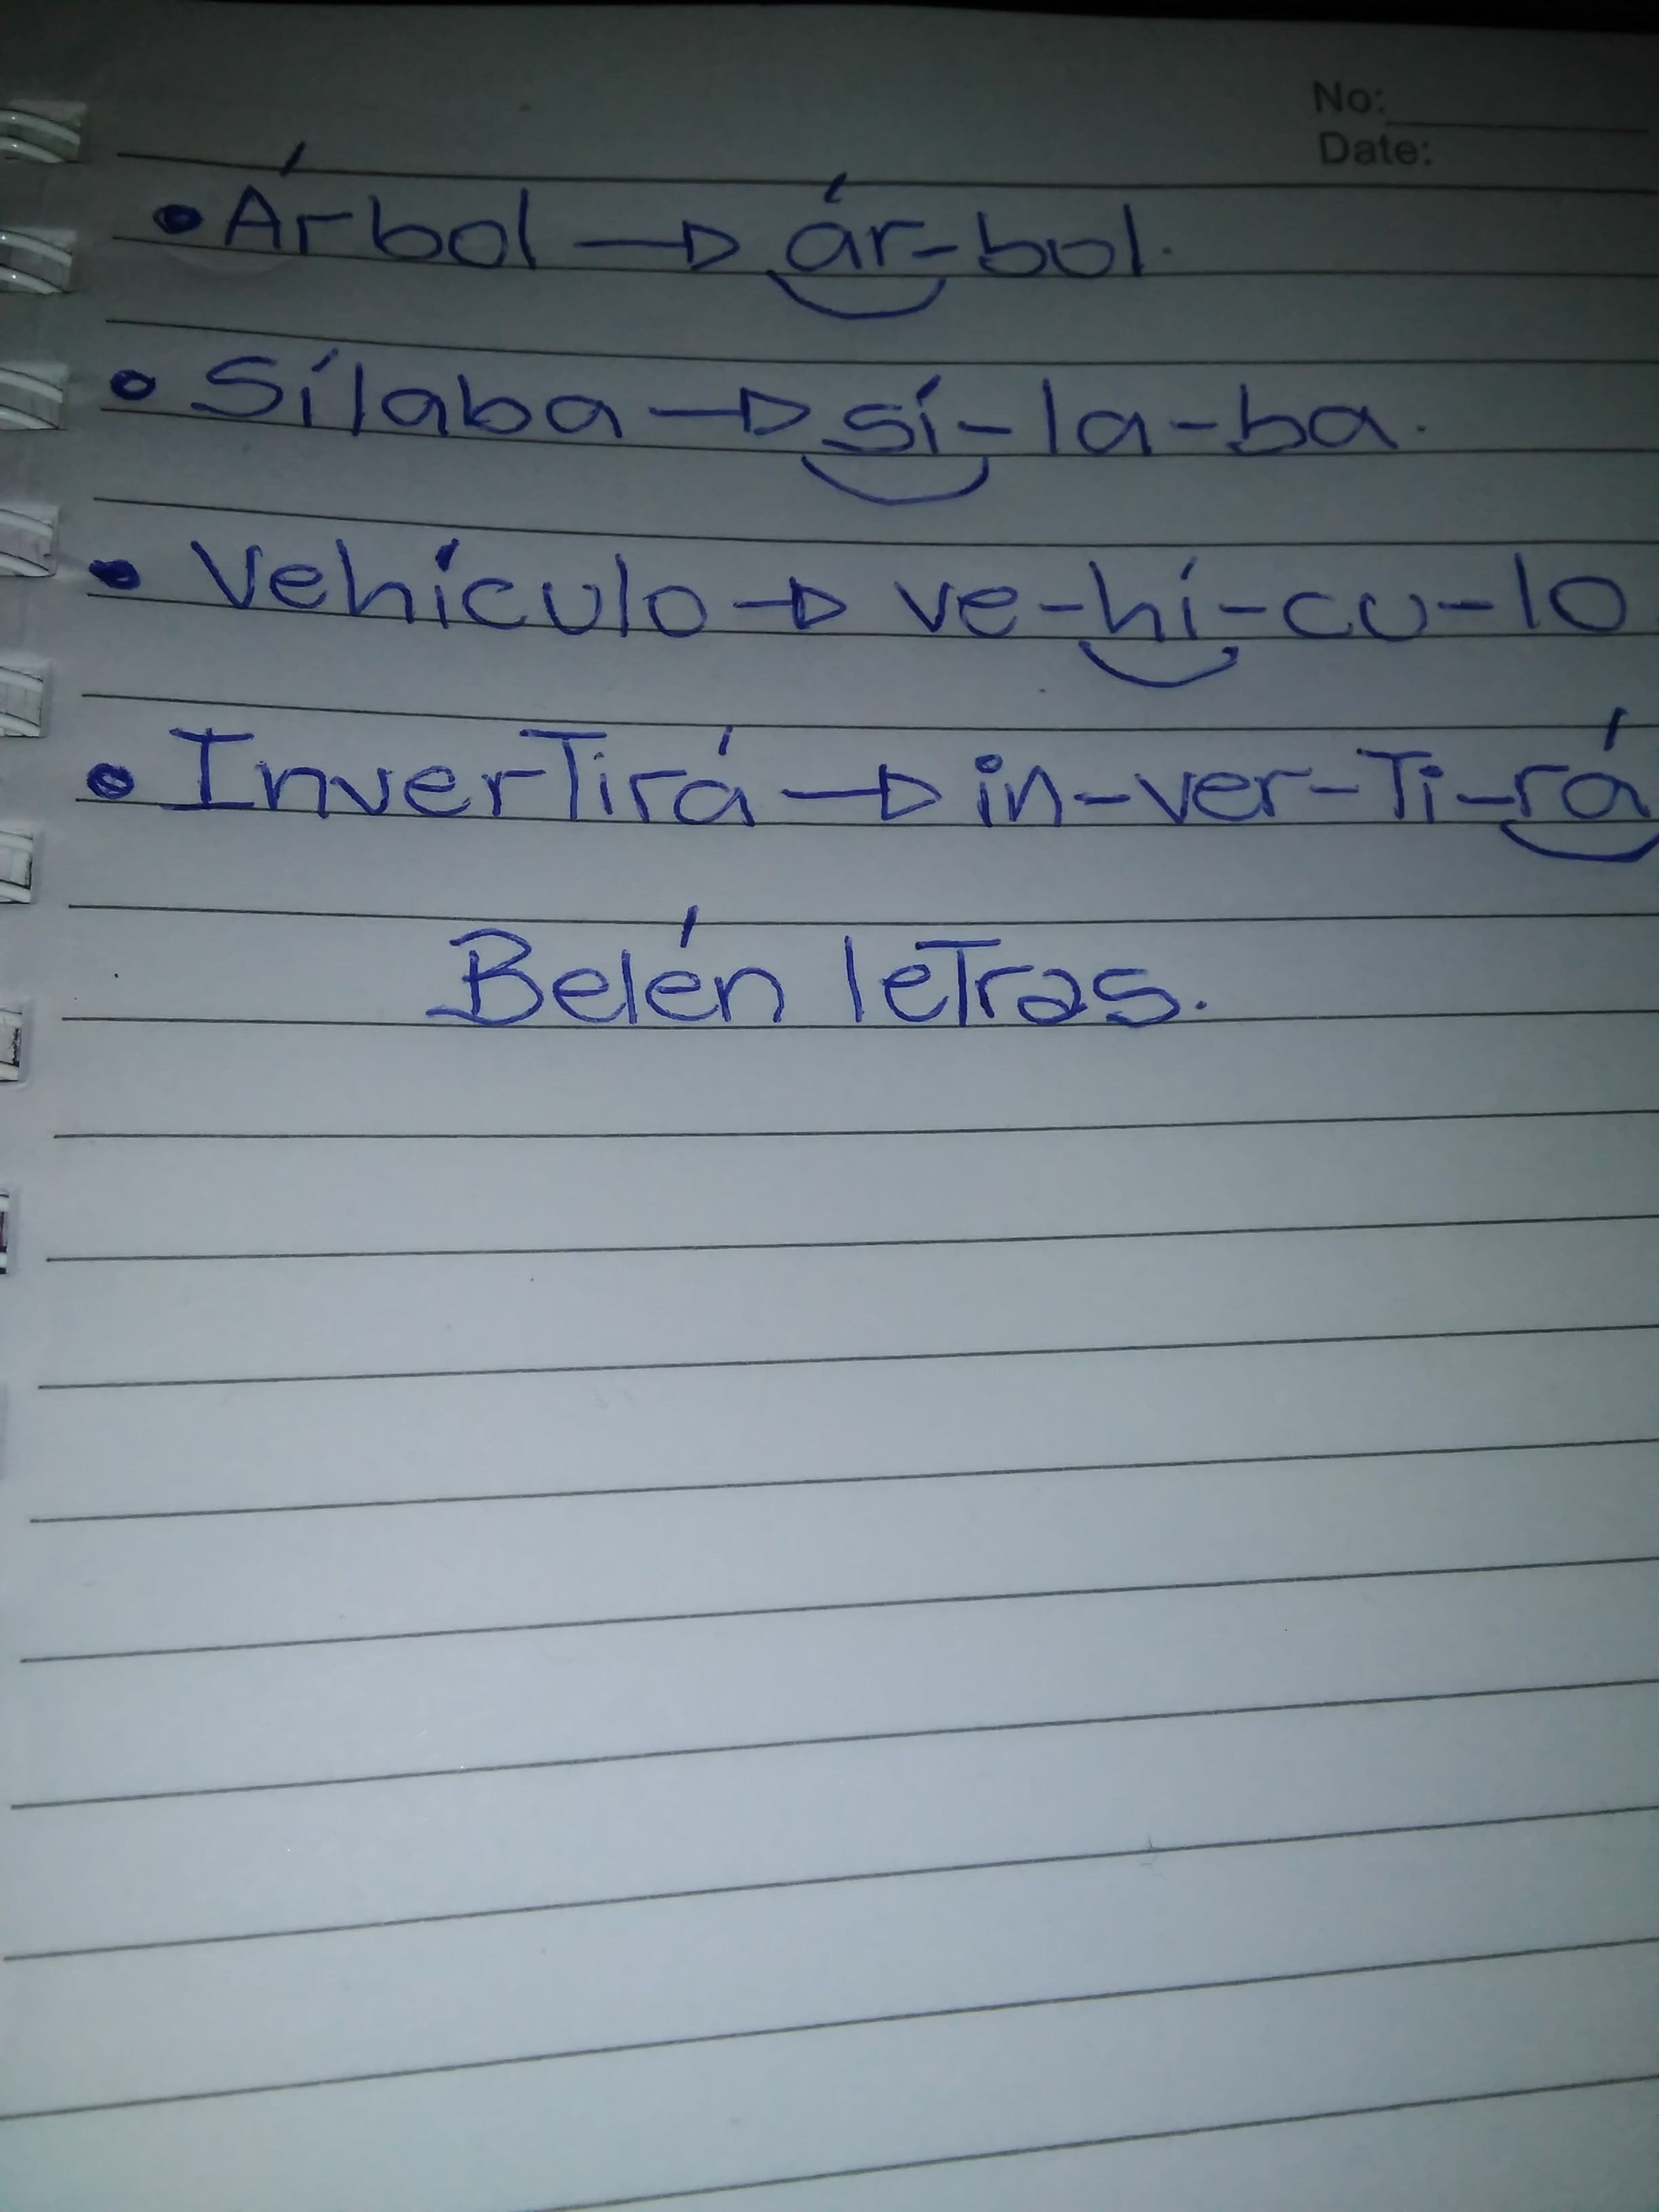 No:
Date:
• Árbol → ár-bol.
• Sílaba → sí-la-ba.
• Vehículo → ve-hí-cu-lo
• Invertirá → in-ver-ti-rá
Belén letras.